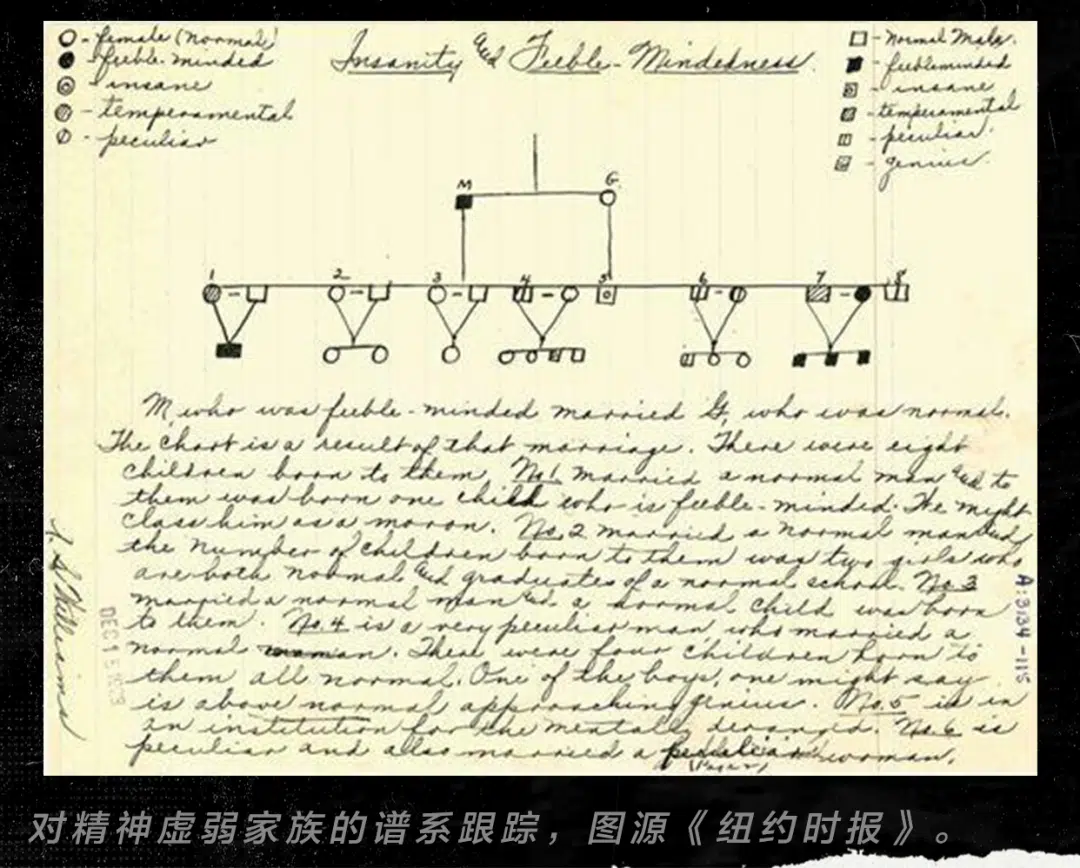 Insanity and Feeble-Mindedness.
O - female (normal)
- feeble-minded
- insane
- temperamental
- peculiar
- Normal Male.
- feebleminded
- insane
- temperamental
- peculiar.
- genius.
M G.
1 2 3 4 5 6 7 8
M, who was feeble-minded married G, who was normal.
The chart is a result of that marriage. There were eight
children born to them. No 1 married a normal man and to
them was born one child who is feeble-minded. We might
class him as a moron. No. 2 married a normal man and
the number of children born to them was two girls who
are both normal and graduates of a normal school. No 3
married a normal man and a normal child was born
to them. No. 4 is a very peculiar man, who married a
normal woman. There were four children born to
them all normal. One of the boys, one might say
is above normal approaching genius. No. 5 is in
an institution for the mentally deranged. No. 6 is
peculiar and also married a peculiar woman.
Williams
DEC 15
A:3134-115
对精神虚弱家族的谱系跟踪，图源《纽约时报》。